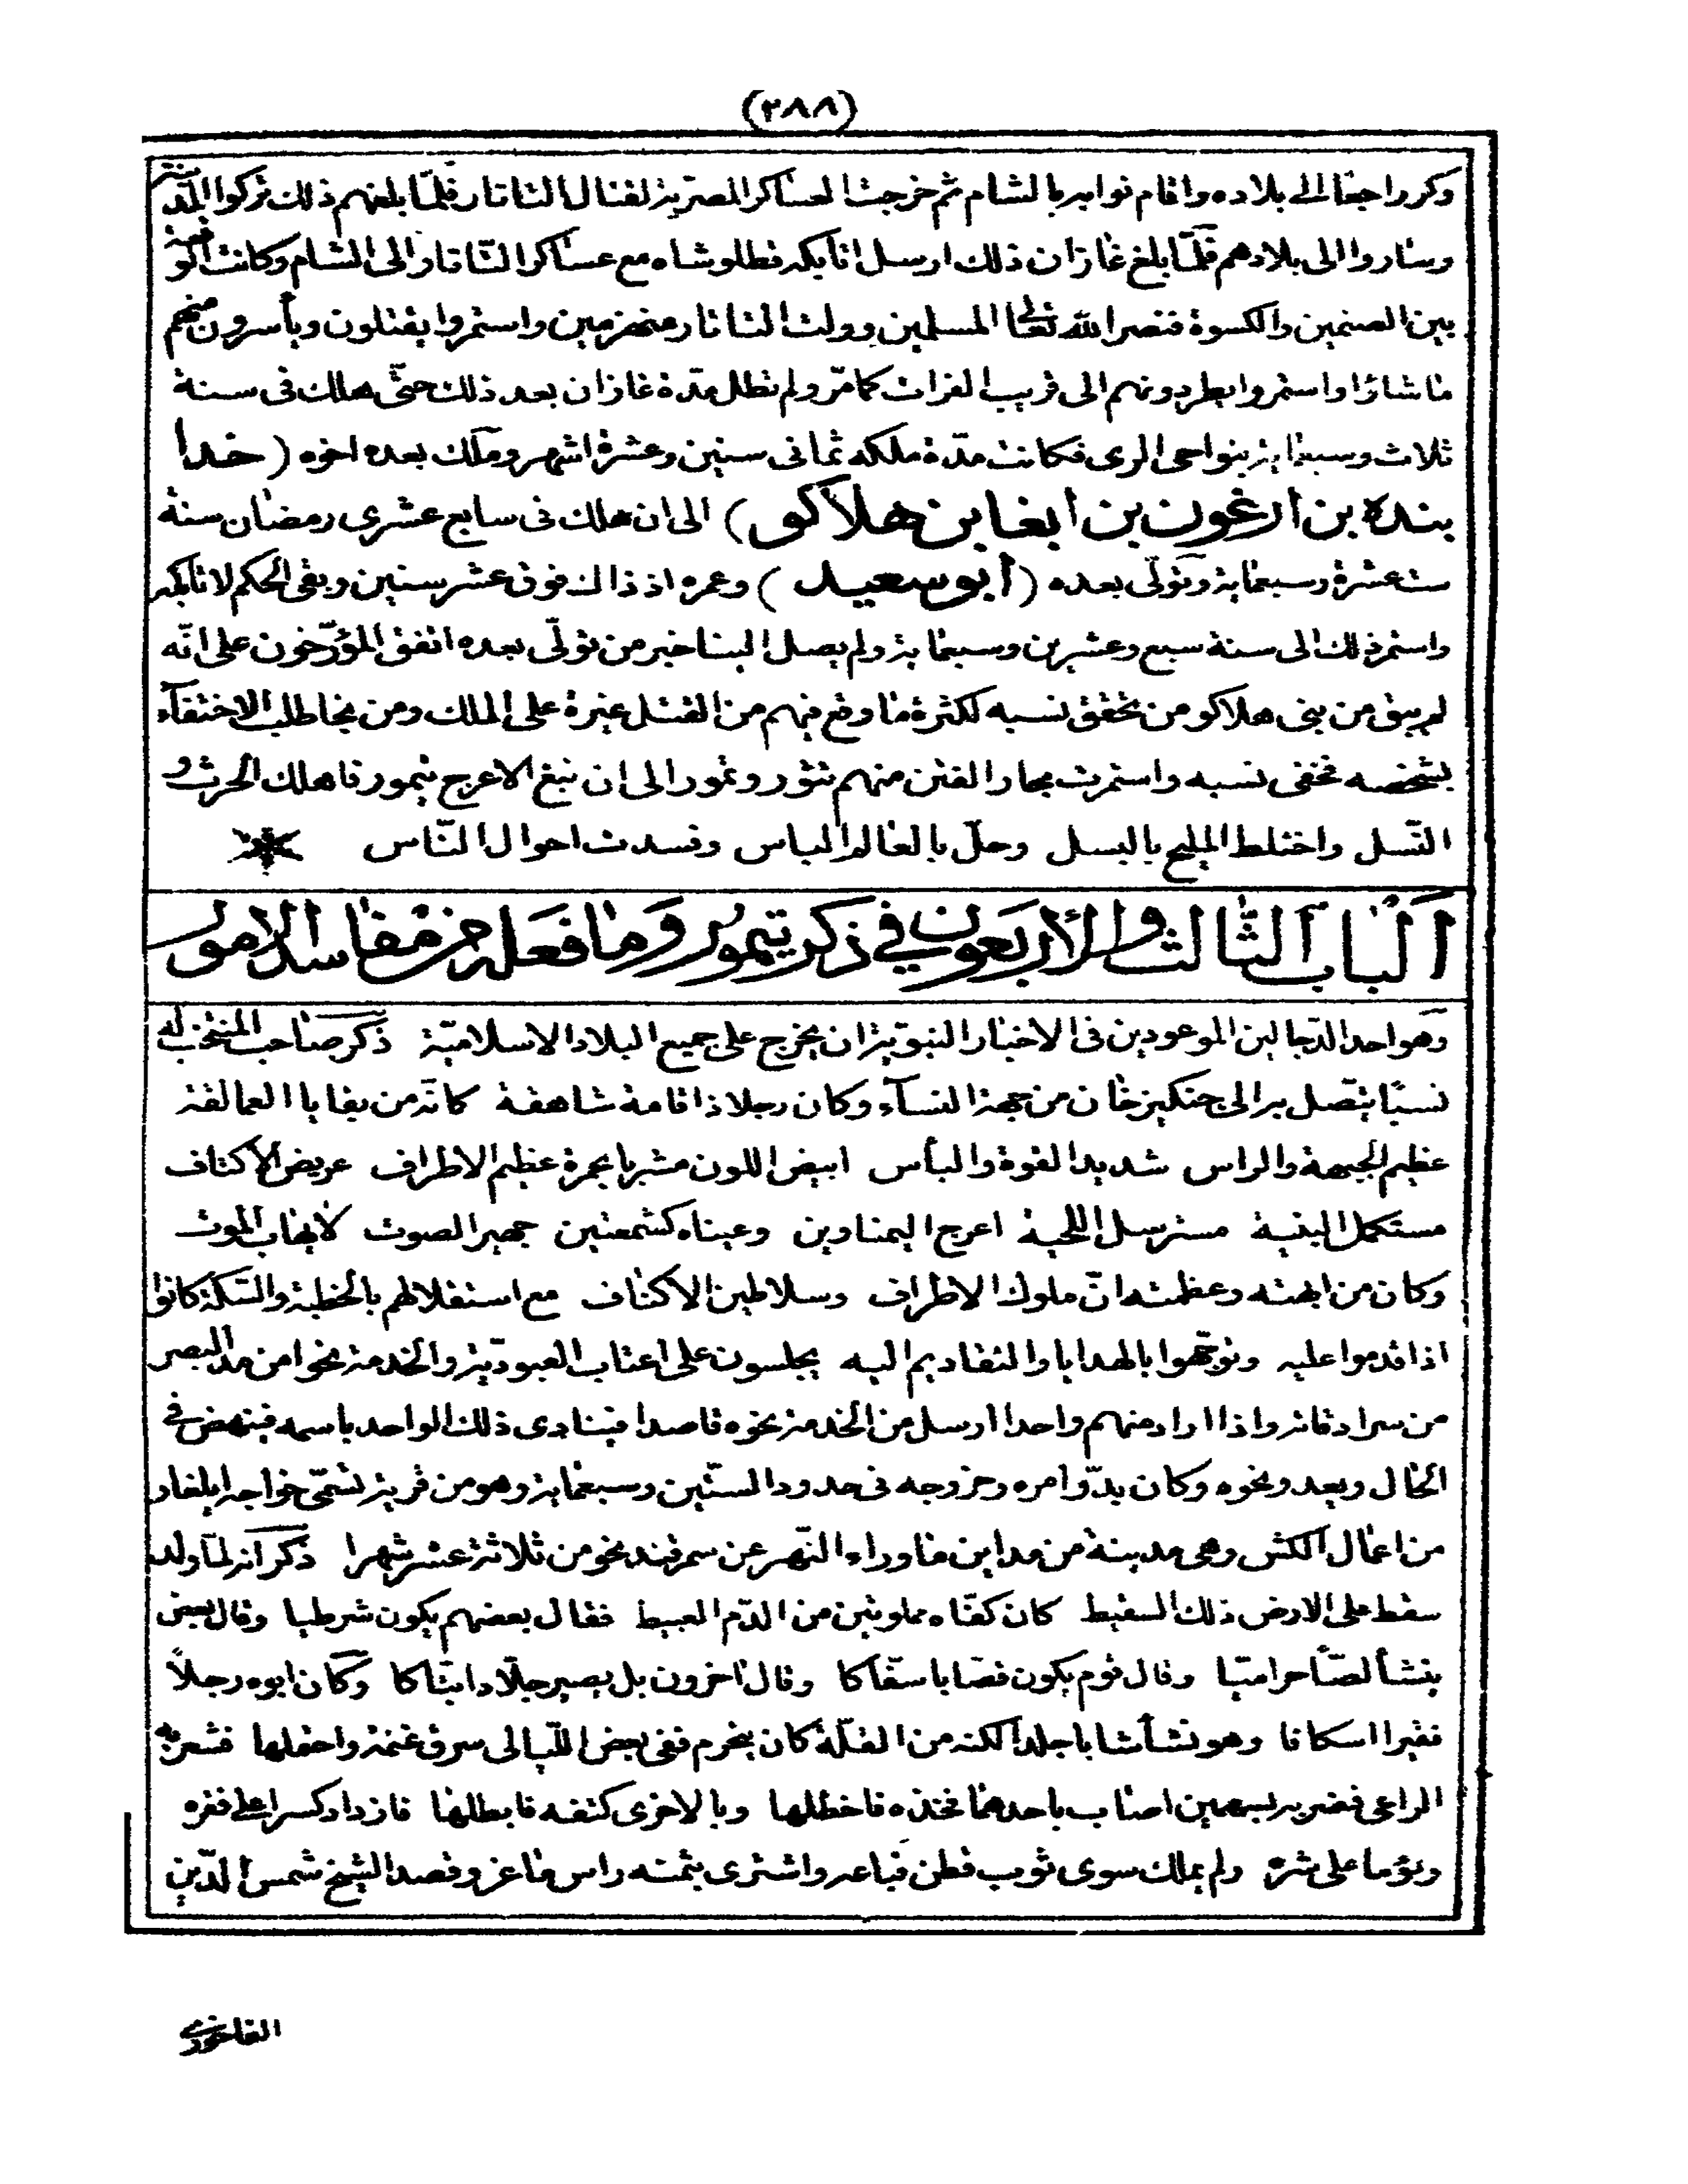 (٢٨٨)
وكر راجعا الى بلاده واقام نوابه بالشام ثم خرجت العساكر المصرية لقتال التاتار فلمّا بلغهم ذلك تركوا البلد
وساروا الى بلادهم فلمّا بلغ غازان ذلك ارسل اتابكه قطلوشاه مع عساكر التّاتار الى الشام وكانت الوقعة
بين الصنمين والكسوة فنصر الله تعالى المسلمين وولت التاتار منهزمين واستمروا يقتلون ويأسرون منهم
ما شاؤا واستمروا يطردونهم الى قريب الفرات كما مرّ ولم تطل مدّة غازان بعد ذلك حتّى هلك فى سنة
ثلاث وسبعماية بنواحى الرى فكانت مدّة ملكه ثمانى سنين وعشرة اشهر وملك بعده اخوه (خدا
بنده بن ارغون بن ابغا بن هلاكو) الى ان هلك فى سابع عشرى رمضان سنة
ست عشرة وسبعماية وتولّى بعده (أبو سعيد) وعمره اذ ذاك فوق عشر سنين وبقى الحكم لاتابكه
واستمر ذلك الى سنة سبع وعشرين وسبعماية ولم يصل الينا خبر من تولّى بعده اتفق المؤرّخون على انّه
لم يبق من بنى هلاكو من تحقق نسبه لكثرة ما وقع فيهم من القتل غيرة على الملك ومن نجا طلب الاختفآء
بشخصه فخفى نسبه واستمرت بحار الفتن منهم تثور وتمور الى ان نبغ الاعرج تيمور فاهلك الحرث و
النّسل واختلط المليح بالبسل وحلّ بالعالم الباس وفسدت احوال النّاس
الباب الثالث والأربعون في ذكر تيمور وما فعله من مفاسد الامور
وهو احد الدّجالين الموعودين فى الاخبار النبوّية ان يخرج على جميع البلاد الاسلاميّة ذكر صاحب المنتخب له
نسبًا يتّصل به الى جنكيز خان من جهة النسآء وكان رجلا ذا قامة شاهقة كانّه من بقايا العمالقة
عظيم الجبهة والراس شديد القوة والبأس ابيض اللون مشربا بحمرة عظيم الاطراف عريض الاكتاف
مستكمل البنية مسترسل اللحية اعرج اليمناوين وعيناه كشمعتين جهير الصوت لا يهاب الموت
وكان من ابهته وعظمته انّ ملوك الاطراف وسلاطين الاكناف مع استقلالهم بالخطبة والسّكة كانوا
اذا قدموا عليه وتوجّهوا بالهدايا والتقاديم اليه يجلسون على اعتاب العبوديّة والخدمة نحوا من مد البصر
من سرادقاته واذا اراد منهم واحدا ارسل من الخدمة نحوه قاصدا فينادى ذلك الواحد باسمه فينهض في
الحال ويعدو نحوه وكان بدّو امره وخروجه فى حدود الستّين وسبعماية وهو من قرية تسمّى خواجه ايلغار
من اعمال الكش وهى مدينة من مداين ما وراء النّهر عن سمرقند نحو من ثلاثة عشر شهرا ذكر انه لمّا ولد
سقط على الارض ذلك السقيط كان كفّاه مملوئين من الدّم العبيط فقال بعضهم يكون شرطيا وقال بعض
ينشأ لصّا حراميّا وقال قوم يكون قصّابا سفّاكا وقال اخرون بل يصير جلّادا بتّاكا وكان ابوه رجلاً
فقيرا اسكافا وهو نشأ شابا جلدا لكنه من القلّة كان يتجرم ففى بعض اللّيالى سرق غنمة واحتملها فشعر به
الراعى فضربه بسهمين اصاب باحدهما فخذه فاخطلها وبالاخرى كتفه فابطلها فازداد كسرا على فقره
ولؤما على شرّه ولم يملك سوى ثوب قطن فباعه واشترى بثمنه راس ماعز وقصد الشيخ شمس الدّين
الفاخورى